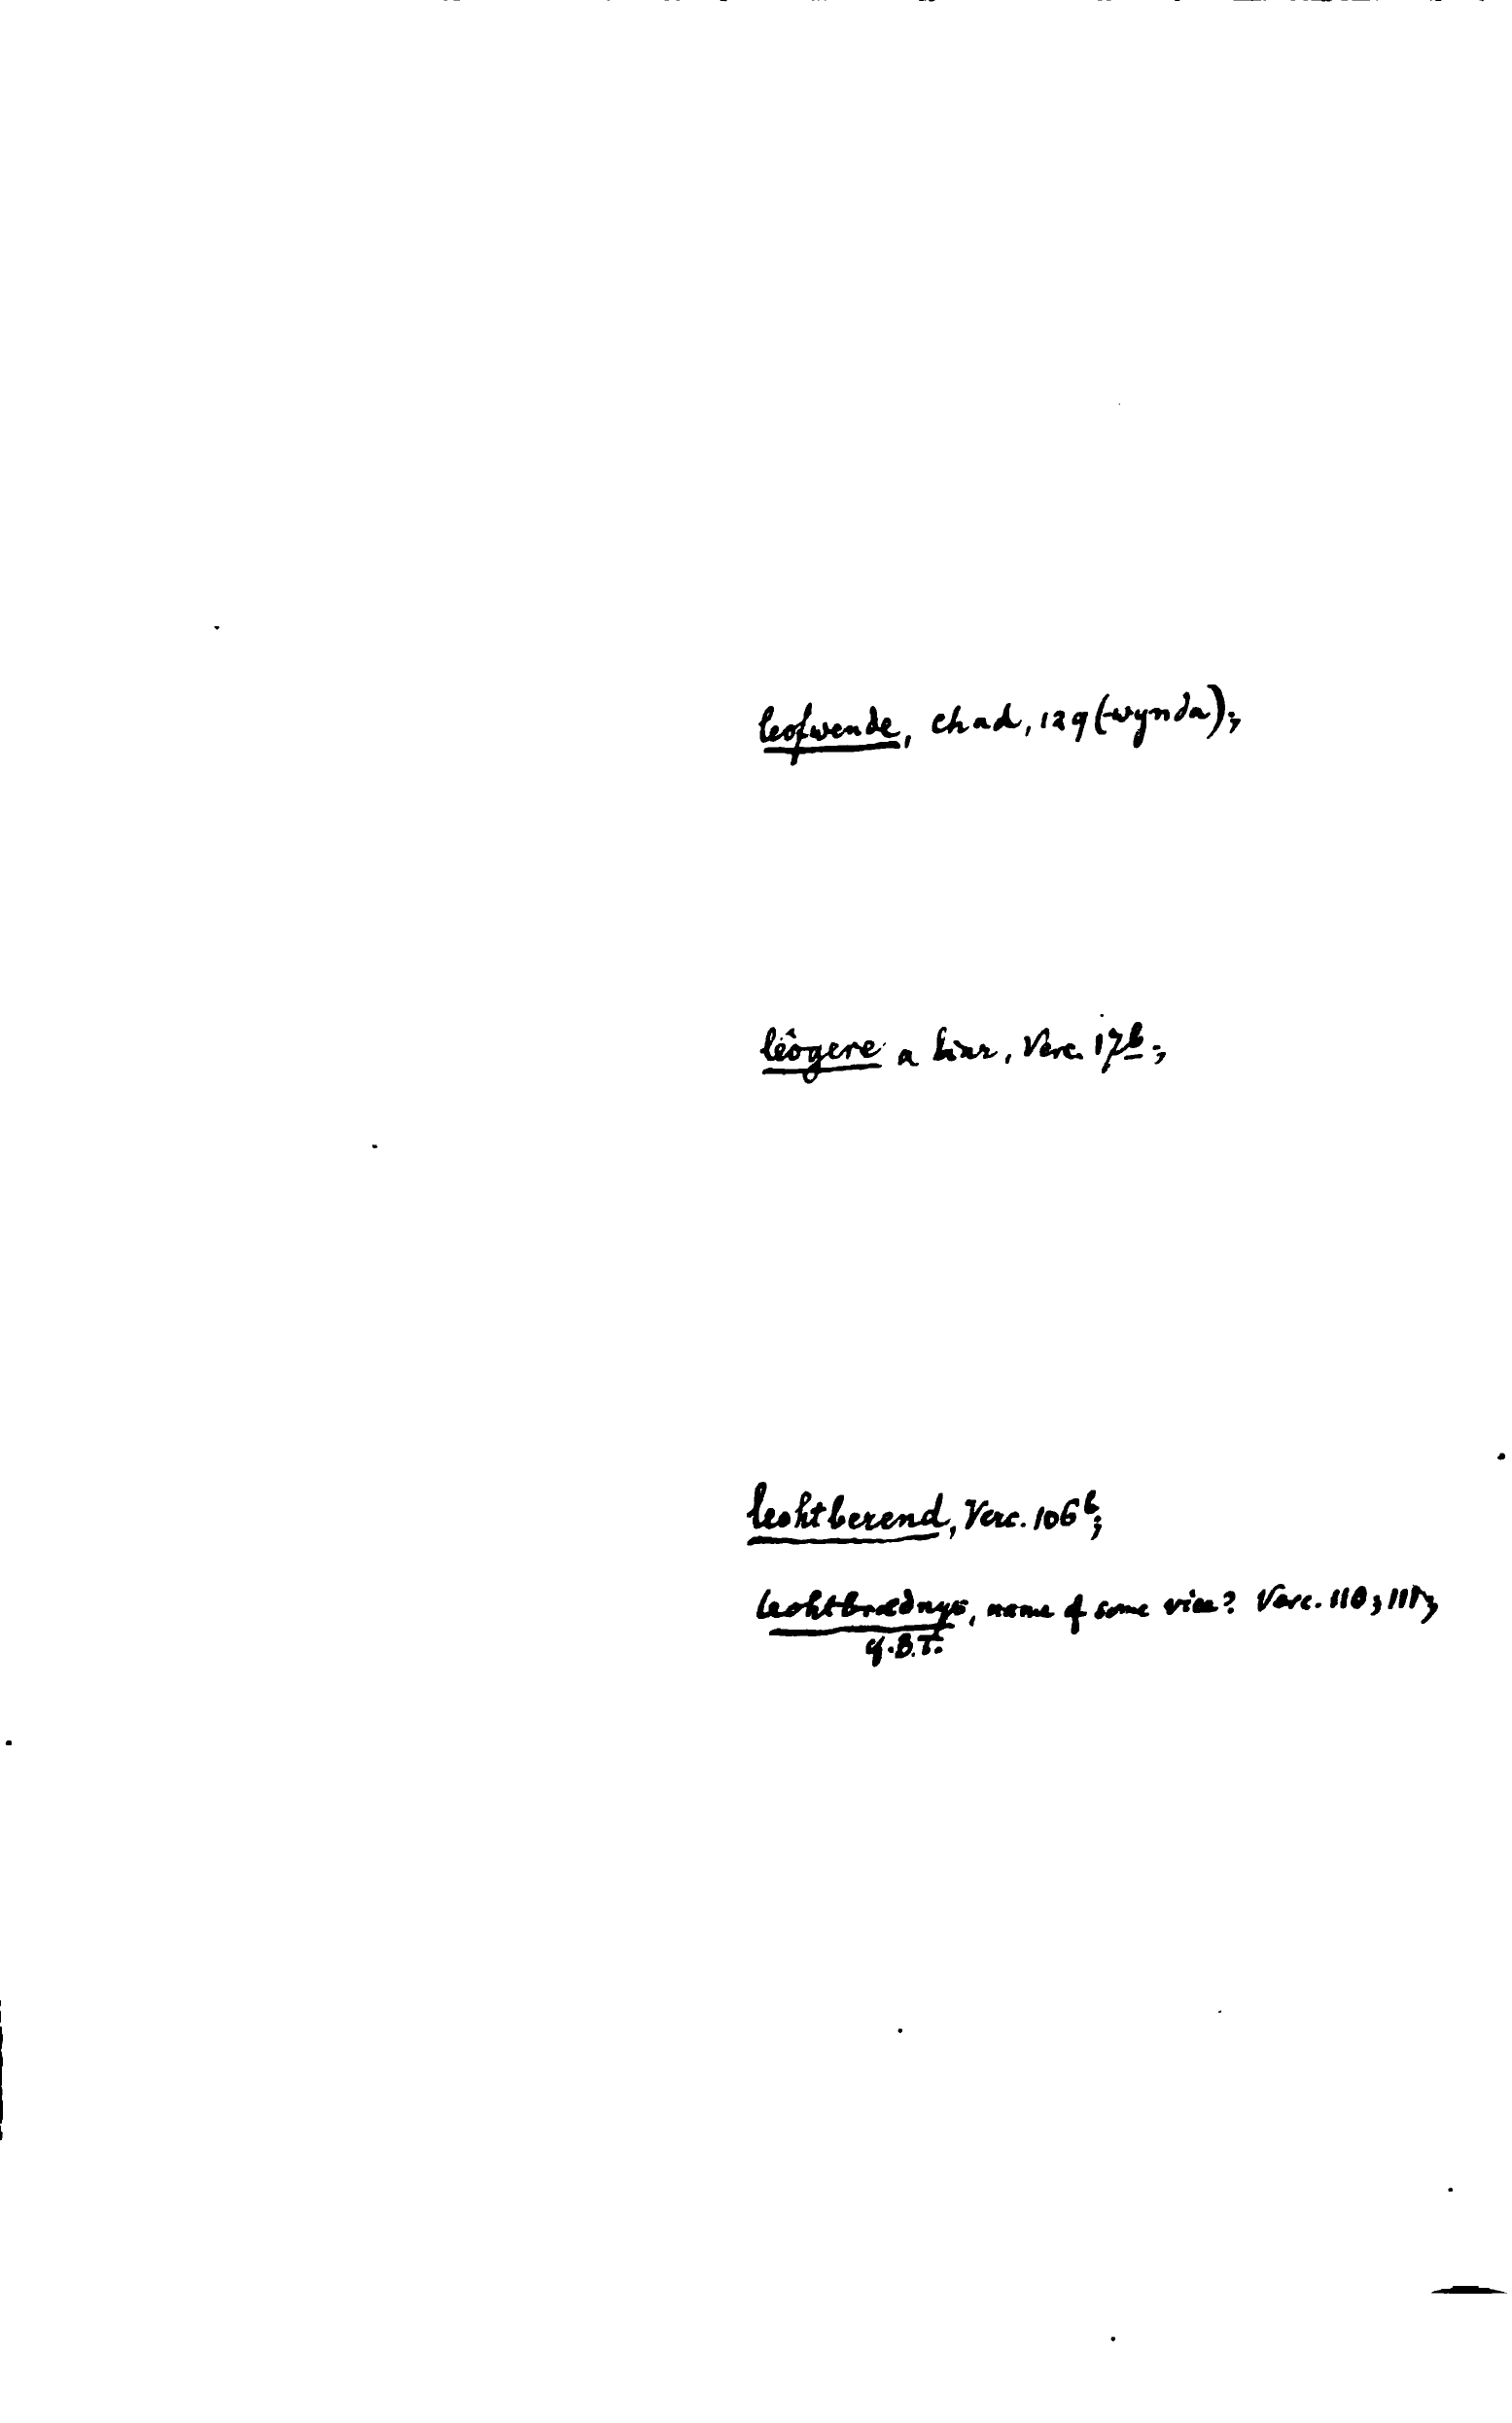 leofwende, chad, 129 (-wynda);
lêogere a liar, Verc. 17b;
leohtberend, Verc. 106b;
leohtbrædnys, name of some vice? Verc. 110; 111;
cf. B.T.